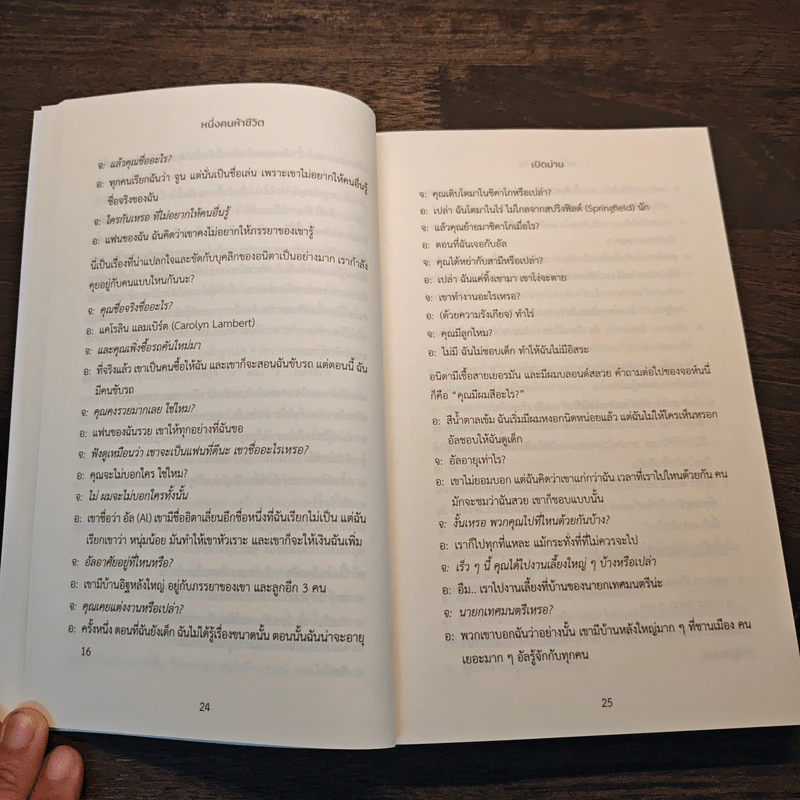 หนึ่งคนห้าชีวิต
จ: แล้วคุณชื่ออะไร?
อ: ทุกคนเรียกฉันว่า จูน แต่นั่นเป็นชื่อเล่น เพราะเขาไม่อยากให้คนอื่นรู้
ชื่อจริงของฉัน
จ: ใครกันเหรอ ที่ไม่อยากให้คนอื่นรู้
อ: แฟนของฉัน ฉันคิดว่าเขาคงไม่อยากให้ภรรยาของเขารู้
นี่เป็นเรื่องที่น่าแปลกใจและขัดกับบุคลิกของอนิตาเป็นอย่างมาก เรากำลัง
คุยอยู่กับคนแบบไหนกันนะ?
จ: คุณชื่อจริงชื่ออะไร?
อ: แคโรลิน แลมเบิร์ต (Carolyn Lambert)
จ: และคุณเพิ่งซื้อรถคันใหม่มา
อ: ที่จริงแล้ว เขาเป็นคนซื้อให้ฉัน และเขาก็จะสอนฉันขับรถ แต่ตอนนี้ ฉัน
มีคนขับรถ
จ: คุณคงรวยมากเลย ใช่ไหม?
อ: แฟนของฉันรวย เขาให้ทุกอย่างที่ฉันขอ
จ: ฟังดูเหมือนว่า เขาจะเป็นแฟนที่ดีนะ เขาชื่ออะไรเหรอ?
อ: คุณจะไม่บอกใคร ใช่ไหม?
จ: ไม่ ผมจะไม่บอกใครทั้งนั้น
อ: เขาชื่อว่า อัล (Al) เขามีชื่ออิตาเลี่ยนอีกชื่อหนึ่งที่ฉันเรียกไม่เป็น แต่ฉัน
เรียกเขาว่า หนุ่มน้อย มันทำให้เขาหัวเราะ และเขาก็จะให้เงินฉันเพิ่ม
จ: อัลอาศัยอยู่ที่ไหนหรือ?
อ: เขามีบ้านอิฐหลังใหญ่ อยู่กับภรรยาของเขา และลูกอีก 3 คน
จ: คุณเคยแต่งงานหรือเปล่า?
อ: ครั้งหนึ่ง ตอนที่ฉันยังเด็ก ฉันไม่ได้รู้เรื่องขนาดนั้น ตอนนั้นฉันน่าจะอายุ
16
24
เปิดม่าน
จ: คุณเติบโตมาในชิคาโกหรือเปล่า?
อ: เปล่า ฉันโตมาในไร่ ไม่ไกลจากสปริงฟิลด์ (Springfield) นัก
จ: แล้วคุณย้ายมาชิคาโกเมื่อไร?
อ: ตอนที่ฉันเจอกับอัล
จ: คุณได้หย่ากับสามีหรือเปล่า?
อ: เปล่า ฉันแค่ทิ้งเขามา เขาโง่จะตาย
จ: เขาทำงานอะไรเหรอ?
อ: (ด้วยความรังเกียจ) ทำไร่
จ: คุณมีลูกไหม?
อ: ไม่มี ฉันไม่ชอบเด็ก ทำให้ฉันไม่มีอิสระ
อนิตามีเชื้อสายเยอรมัน และมีผมบลอนด์สลวย คำถามต่อไปของจอห์นนี่
ก็คือ “คุณมีผมสีอะไร?”
อ: สีน้ำตาลเข้ม ฉันเริ่มมีผมหงอกนิดหน่อยแล้ว แต่ฉันไม่ให้ใครเห็นหรอก
อัลชอบให้ฉันดูเด็ก
จ: อัลอายุเท่าไร?
อ: เขาไม่ยอมบอก แต่ฉันคิดว่าเขาแก่กว่าฉัน เวลาที่เราไปไหนด้วยกัน คน
มักจะชมว่าฉันสวย เขาก็ชอบแบบนั้น
จ: งั้นเหรอ พวกคุณไปที่ไหนด้วยกันบ้าง?
อ: เราก็ไปทุกที่แหละ แม้กระทั่งที่ที่ไม่ควรจะไป
จ: เร็ว ๆ นี้ คุณได้ไปงานเลี้ยงใหญ่ ๆ บ้างหรือเปล่า
อ: อืม.. เราไปงานเลี้ยงที่บ้านของนายกเทศมนตรีน่ะ
จ: นายกเทศมนตรีเหรอ?
อ: พวกเขาบอกฉันว่าอย่างนั้น เขามีบ้านหลังใหญ่มาก ๆ ที่ชานเมือง คน
เยอะมาก ๆ อัลรู้จักกับทุกคน
25